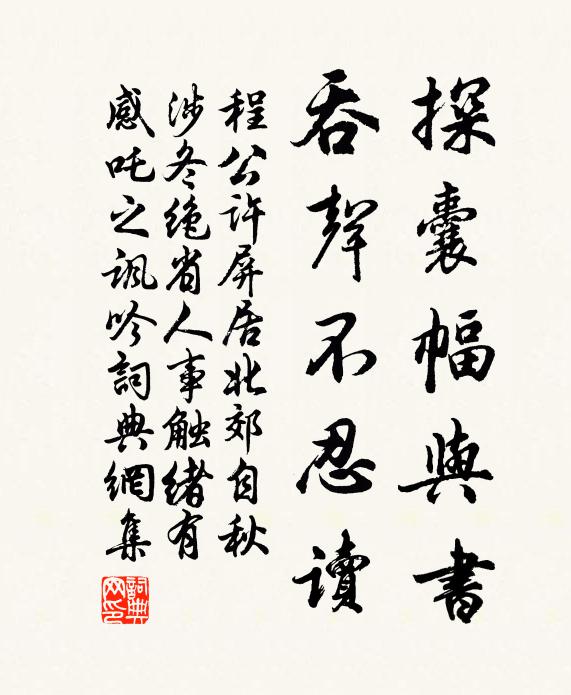 探囊幅與書
吞聲不忍讀
程公許屏居北郊自秋
涉冬絶省人事觸緒有
感吒之諷吟詞典網集
詞典
网印